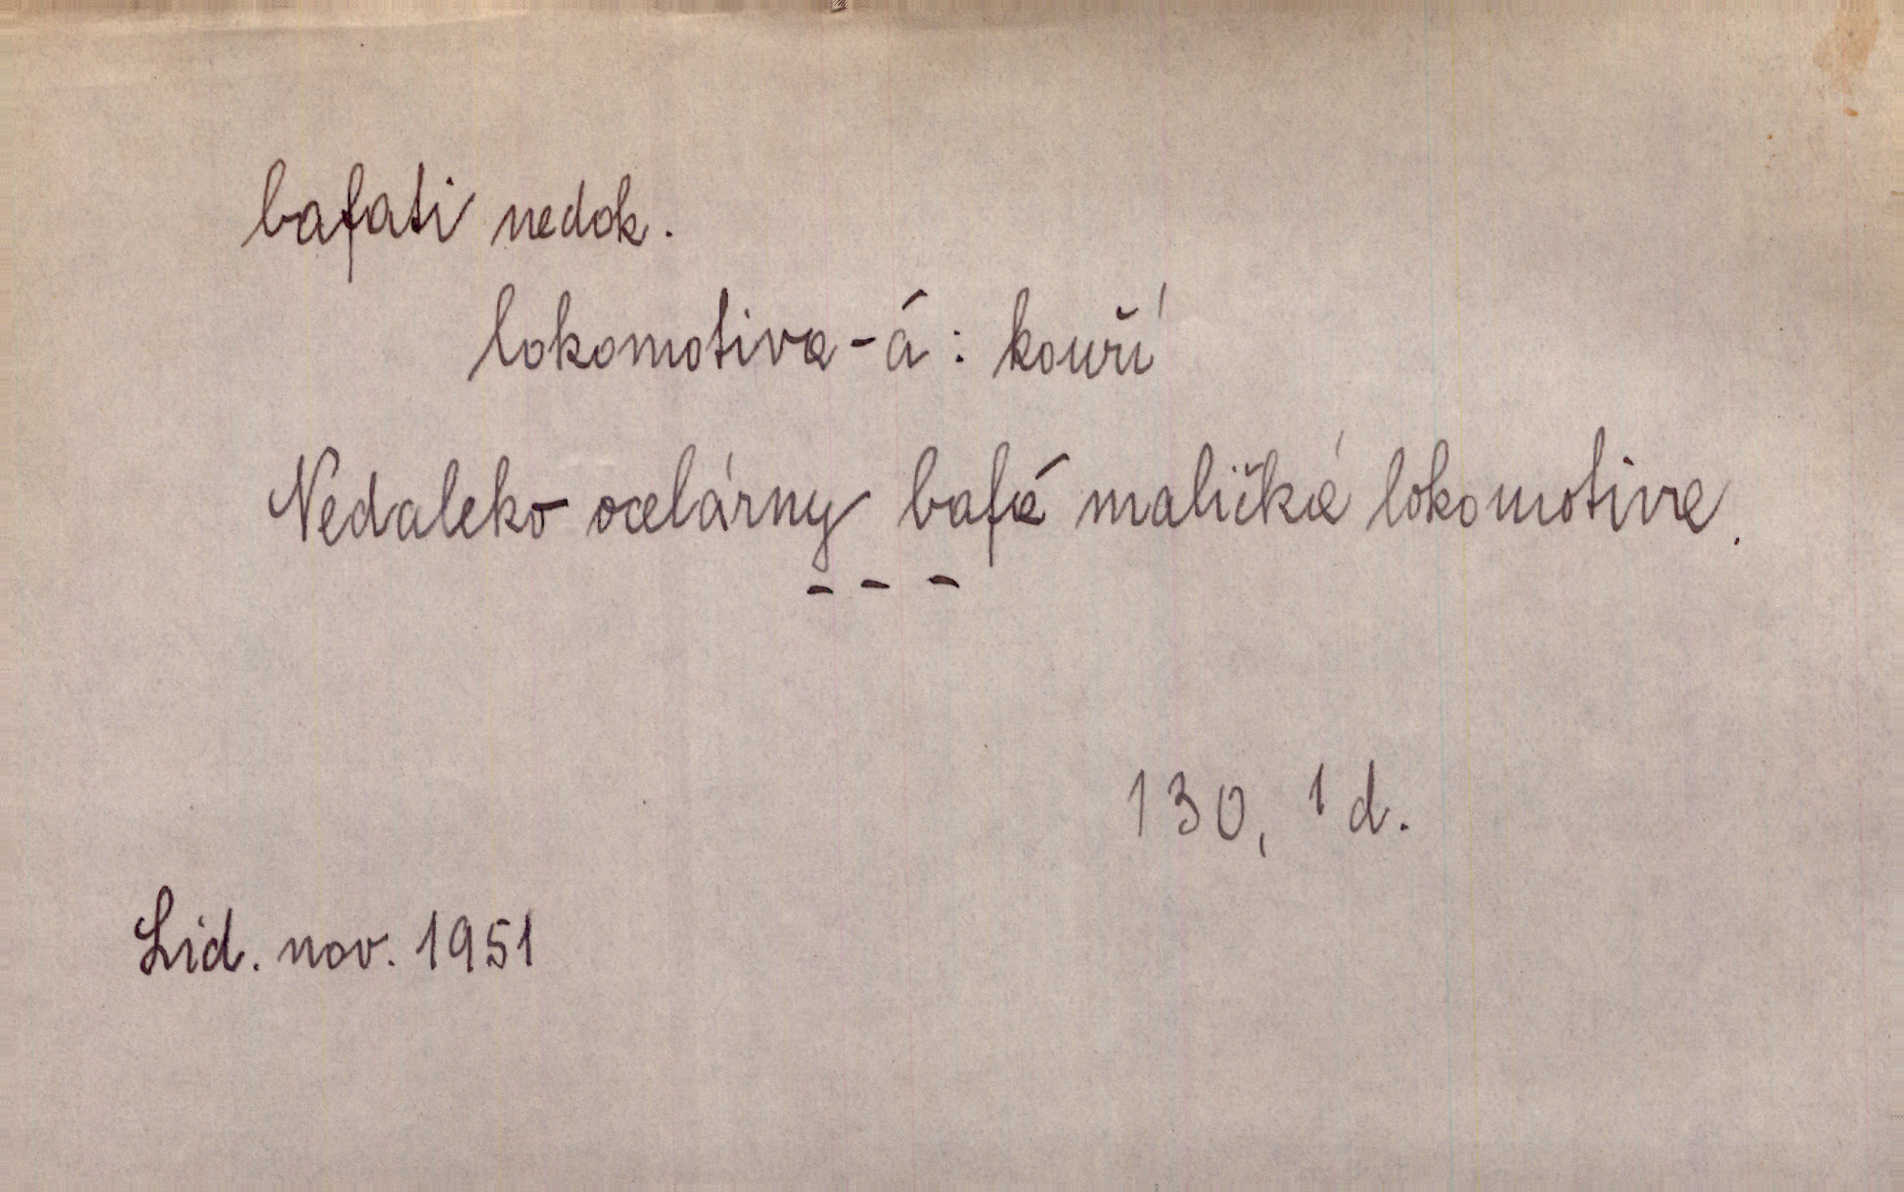 bafati nedok.
lokomotiva -á: kouří
Nedaleko ocelárny bafá maličká lokomotiva.
- - -
130, 1 d.
Lid. nov. 1951